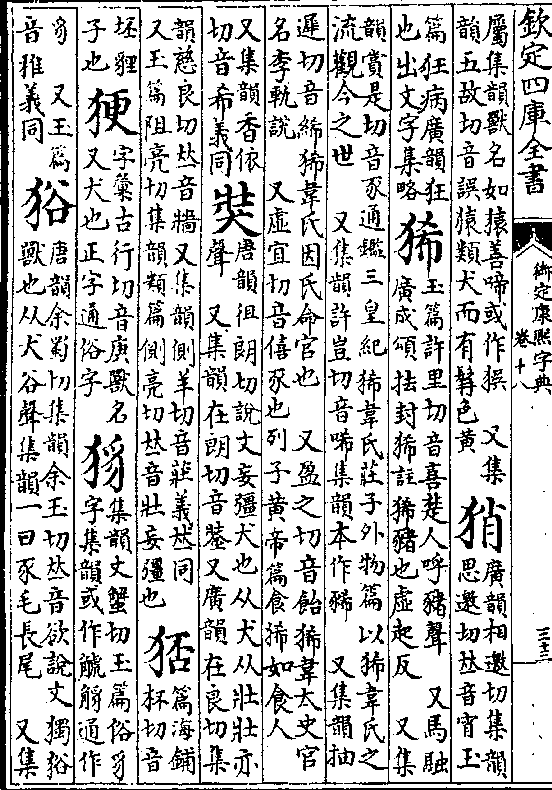 欽定四庫全書
御定康熙字典
卷十八
三十三
屬集韻獸名如猿善啼或作 又集
韻五故切音誤猿類犬而有髯色黃
廣韻相邀切集韻
思邀切𠀤音宵玉
篇狂病廣韻狂
也出文字集略
狶
玉篇許里切音喜楚人呼豬聲 又馬融
廣成頌㧒封狶註狶豬也虛起反 又集
韻賞是切音豕通鑑三皇紀狶韋氏莊子外物篇以狶韋氏之
流觀今之世 又集韻許豈切音唏集韻本作豨 又集韻抽
遲切音絺狶韋氏因氏命官也 又盈之切音飴狶韋太史官
名李軌說 又虛宜切音僖豕也列子黃帝篇食狶如食人
又集韻香依
切音希義同
奘
唐韻徂朗切說文妄彊犬也从犬从壯壯亦
聲 又集韻在朗切音奘又廣韻在良切集
韻慈良切𠀤音牆又集韻側羊切音莊義𠀤同
又玉篇阻亮切集韻類篇側亮切𠀤音壯妄彊也
篇海鋪
杯切音
坯貍
子也
㹴
字彙古行切音庚獸名
又犬也正字通俗字
集韻丈蟹切玉篇俗豸
字集韻或作 通作
豸 又玉篇
音雅義同
唐韻余蜀切集韻余玉切𠀤音欲說文獨
獸也从犬谷聲集韻一曰豕毛長尾 又集